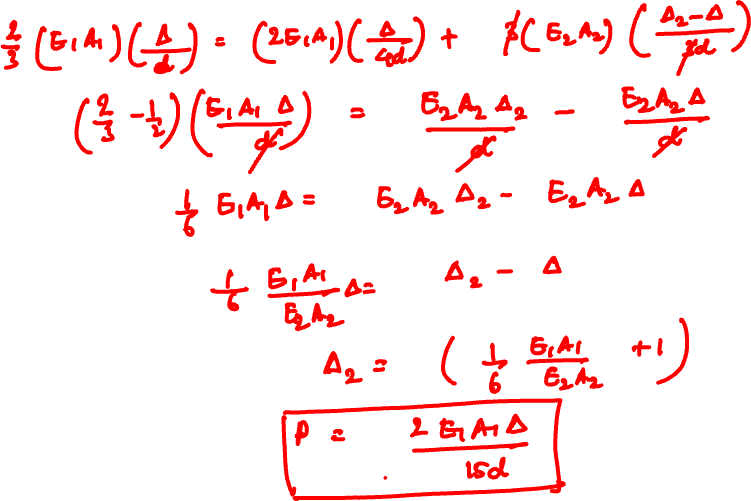 2/3 (E₁A₁)(Δ/d) = (2E₁A₁)(Δ/4d) + 3(E₂A₂)(Δ₂-Δ/3d)
(2/3 - 1/2)(E₁A₁Δ/d) = E₂A₂Δ₂/d - E₂A₂Δ/d
1/6 E₁A₁Δ = E₂A₂Δ₂ - E₂A₂Δ
1/6 E₁A₁/E₂A₂ Δ = Δ₂ - Δ
Δ₂ = (1/6 E₁A₁/E₂A₂ + 1)
P = 2E₁A₁Δ/15d